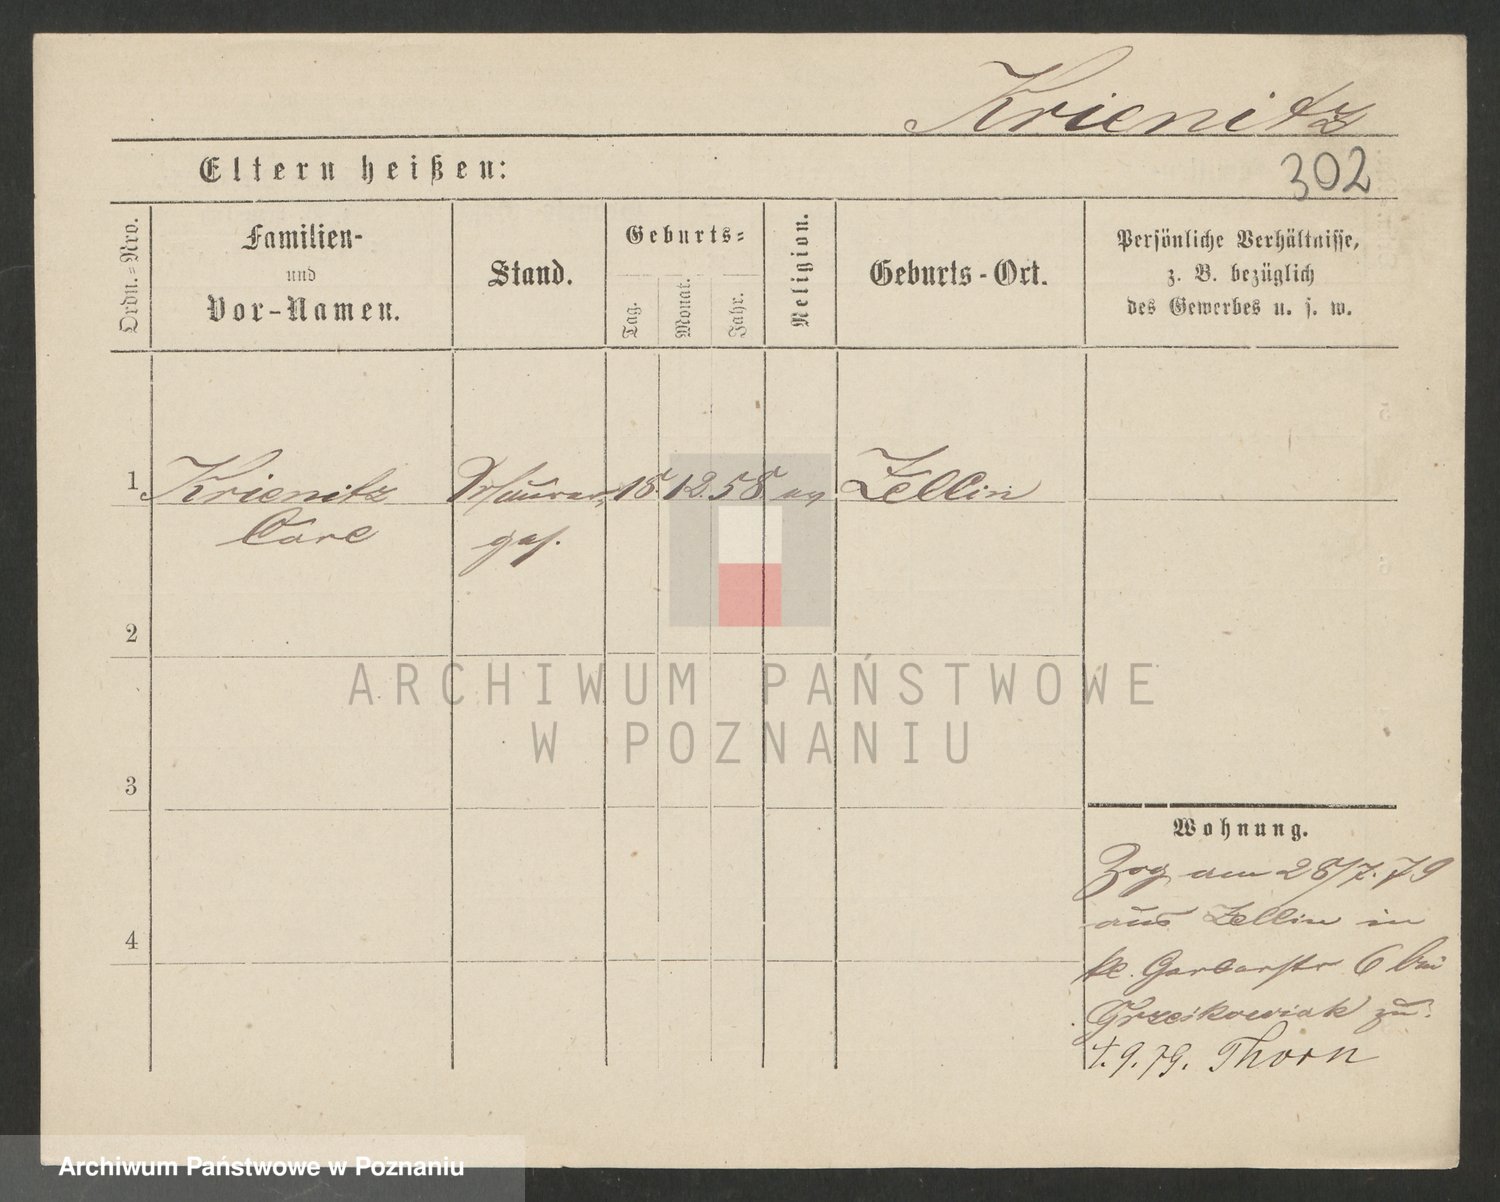 Krienitz
Eltern heißen:
302
Ordn.=Nro.
Familien-
und
Vor-Namen.
Stand.
Geburts=
Tag.
Monat.
Jahr.
Religion.
Geburts-Ort.
Persönliche Verhältnisse,
z. B. bezüglich
des Gewerbes u. s. w.
1 Krienitz 18. 12. 58 ev Zellin
Carl ges.
2
3
4
Wohnung.
Zog am 28/7. 79
aus Zellin in
kl. Gerberstr 6 bei
Grzeskowiak zu.
1. 9. 79. Thorn
ARCHIWUM PAŃSTWOWE
W POZNANIU
Archiwum Państwowe w Poznaniu